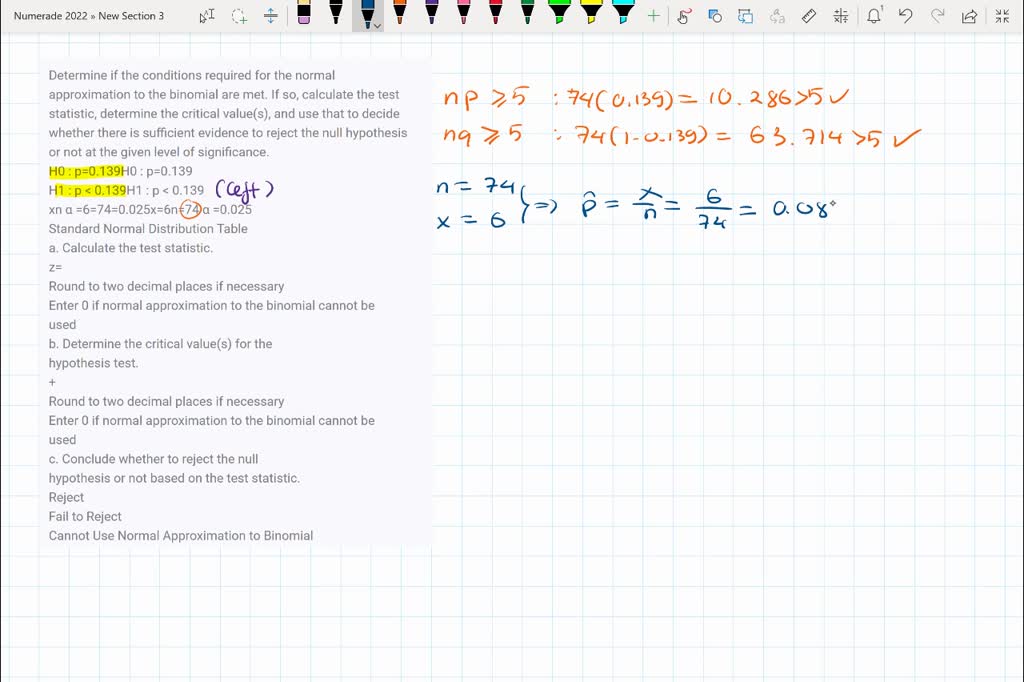 Numerade 2022 » New Section 3
Determine if the conditions required for the normal
approximation to the binomial are met. If so, calculate the test
statistic, determine the critical value(s), and use that to decide
whether there is sufficient evidence to reject the null hypothesis
or not at the given level of significance.
H0 : p=0.139H0 : p=0.139
H1 : p < 0.139H1 : p < 0.139 (left)
xn α =6=74=0.025x=6n=74α =0.025
Standard Normal Distribution Table
a. Calculate the test statistic.
z=
Round to two decimal places if necessary
Enter 0 if normal approximation to the binomial cannot be
used
b. Determine the critical value(s) for the
hypothesis test.
+
Round to two decimal places if necessary
Enter 0 if normal approximation to the binomial cannot be
used
c. Conclude whether to reject the null
hypothesis or not based on the test statistic.
Reject
Fail to Reject
Cannot Use Normal Approximation to Binomial
np ≥ 5 : 74(0.139) = 10.286 > 5 ✓
nq ≥ 5 : 74(1-0.139) = 63.714 > 5 ✓
n = 74
x = 6 } => p̂ = x/n = 6/74 = 0.08